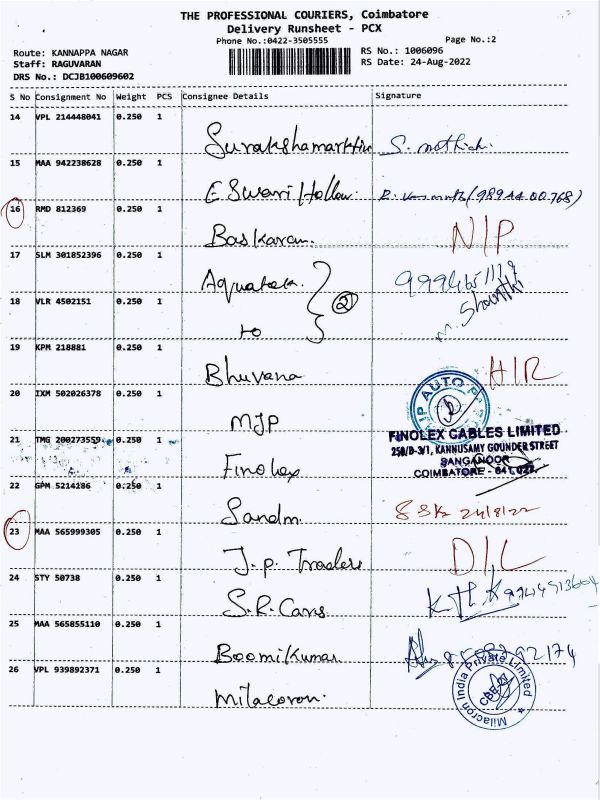 THE PROFESSIONAL COURIERS, Coimbatore
Delivery Runsheet - PCX
Phone No.:0422-3505555
Page No.:2
Route: KANNAPPA NAGAR
RS No.: 1006096
Staff: RAGUVARAN
RS Date: 24-Aug-2022
DRS No.: DCJB100609602
S No Consignment No Weight PCS Consignee Details Signature
14 VPL 214448041 0.250 1
S. mothish.
15 MAA 942238628 0.250 1
E Swari Hollow.
16 RMD 812369 0.250 1
Baskaran. N/P
17 SLM 301852396 0.250 1
Aquatek. 2
18 VLR 4502151 0.250 1
M. Shanthi
to
19 KPM 218881 0.250 1
Bhuvana H/R
20 IXM 502026378 0.250 1
MJP
21 TMG 200273559 0.250 1
FINOLEX CABLES LIMITED
250/D-3/1, KANNUSAMY GOUNDER STREET
SANGANOOR
COIMBATORE - 641 027.
Finolex
22 GPM 5214286 0.250 1
Sandm 24/8/22
23 MAA 565999305 0.250 1
J.P. Traders D/L
24 STY 50738 0.250 1
S.R. Cars
25 MAA 565855110 0.250 1
Boomikumar
26 VPL 939892371 0.250 1
Milacoron.
Milacron India Private Limited